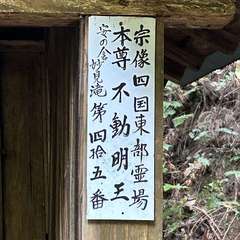 宗像四国東部霊場
本尊不動明王
安の倉妙見滝第四拾五番